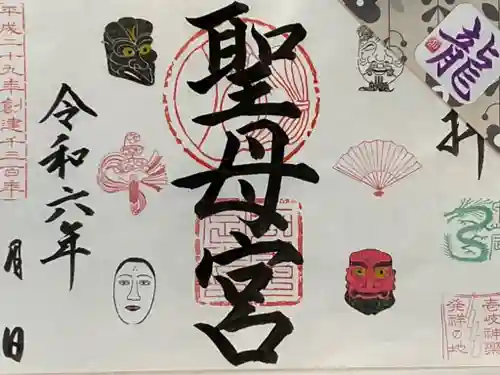 龍
壱岐神楽
発祥の地
聖母宮
令和六年
月 日
平成二十九年創建千三百年